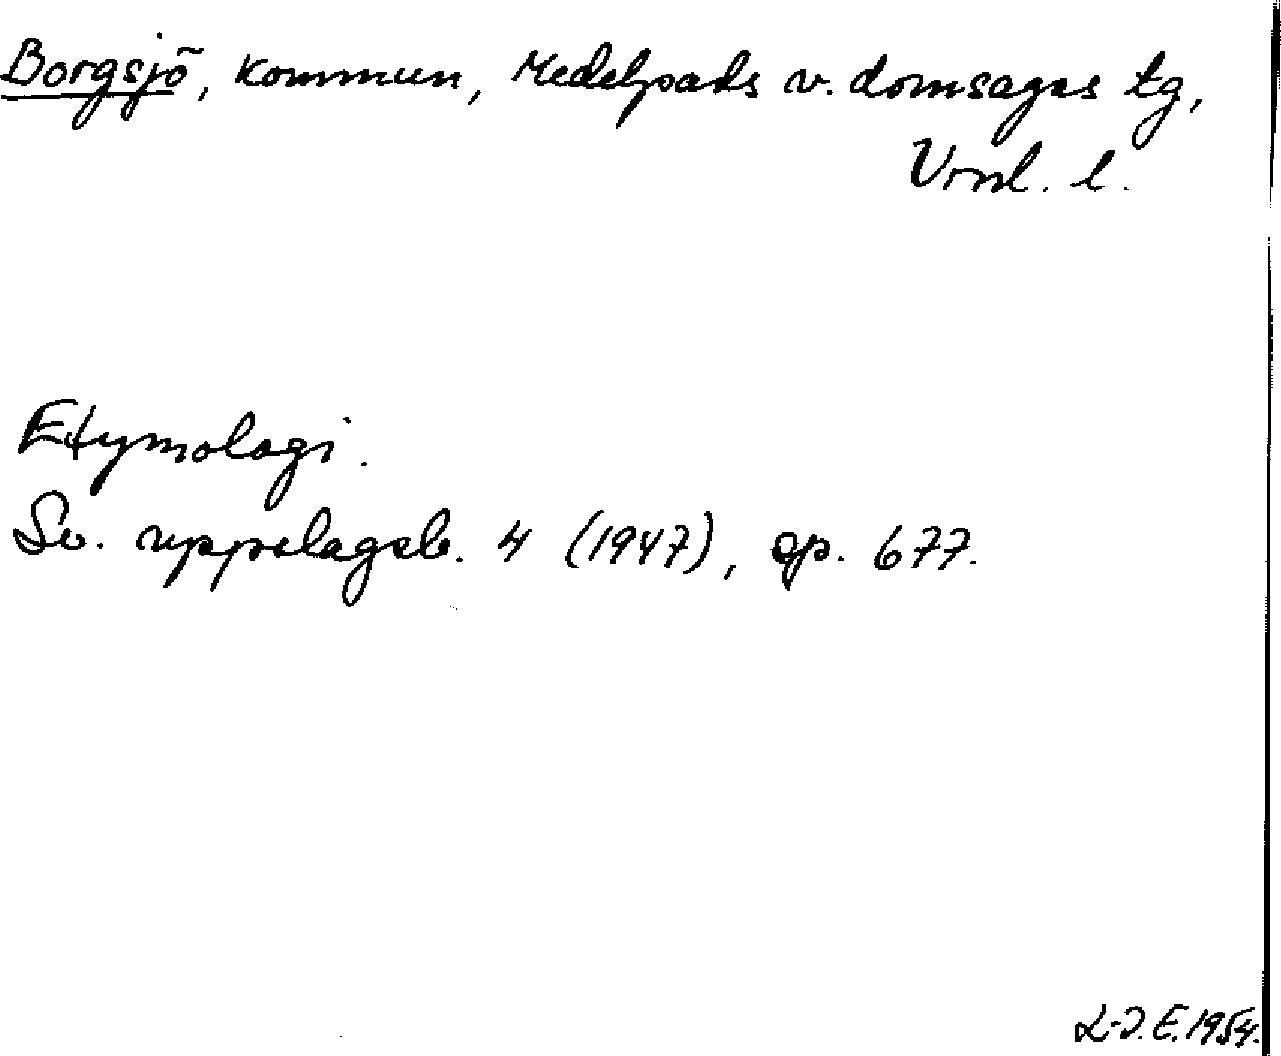 Borgsjö, kommun, Medelpads v. domsagas tg,
Vrnl. l.
Etymologi.
Sv. uppslagsb. 4 (1947), sp. 677.
L-J. E. 1954.